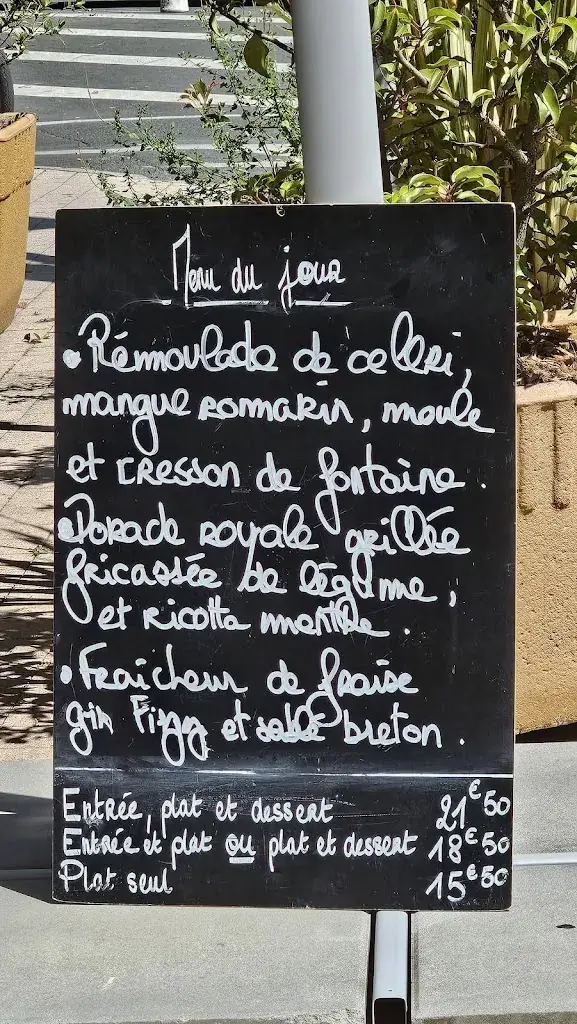 Menu du jour
• Rémoulade de celeri,
mangue romarin, moule
et cresson de fontaine.
• Dorade royale grillée
fricassée de légume,
et ricotta menthe.
• Fraîcheur de fraise
gin Fizzy et sablé breton.
Entrée, plat et dessert 21€50
Entrée et plat ou plat et dessert 18€50
Plat seul 15€50